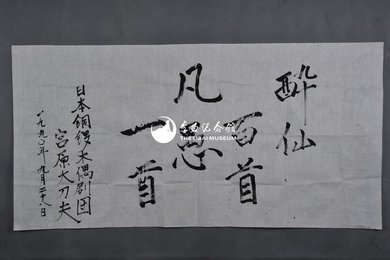 酔仙
百首
凡愚
一首
日本銅鑼木偶劇団
宮原大刀夫
一九九〇年九月二十八日
李白纪念馆
THE LIBAI MUSEUM